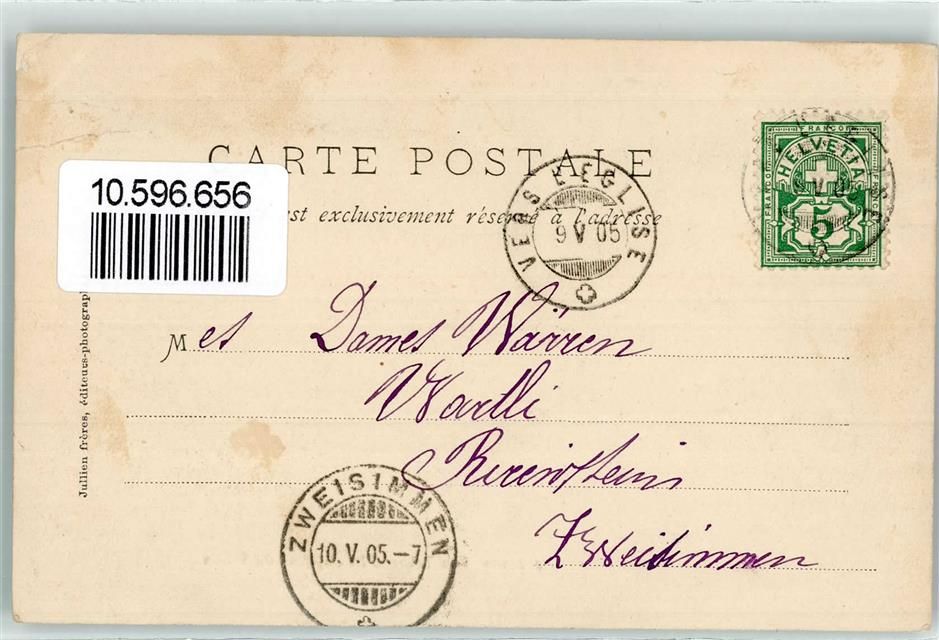 CARTE POSTALE
10.596.656
est exclusivement réservé à l'adresse
FRANCO
HELVETIA
5
VERS L'EGLISE
9 V 05
M es Dames Wärren
Reeinstein
Zweisimmen
ZWEISIMMEN
10. V. 05.–7
Jullien frères, éditeurs-photograph